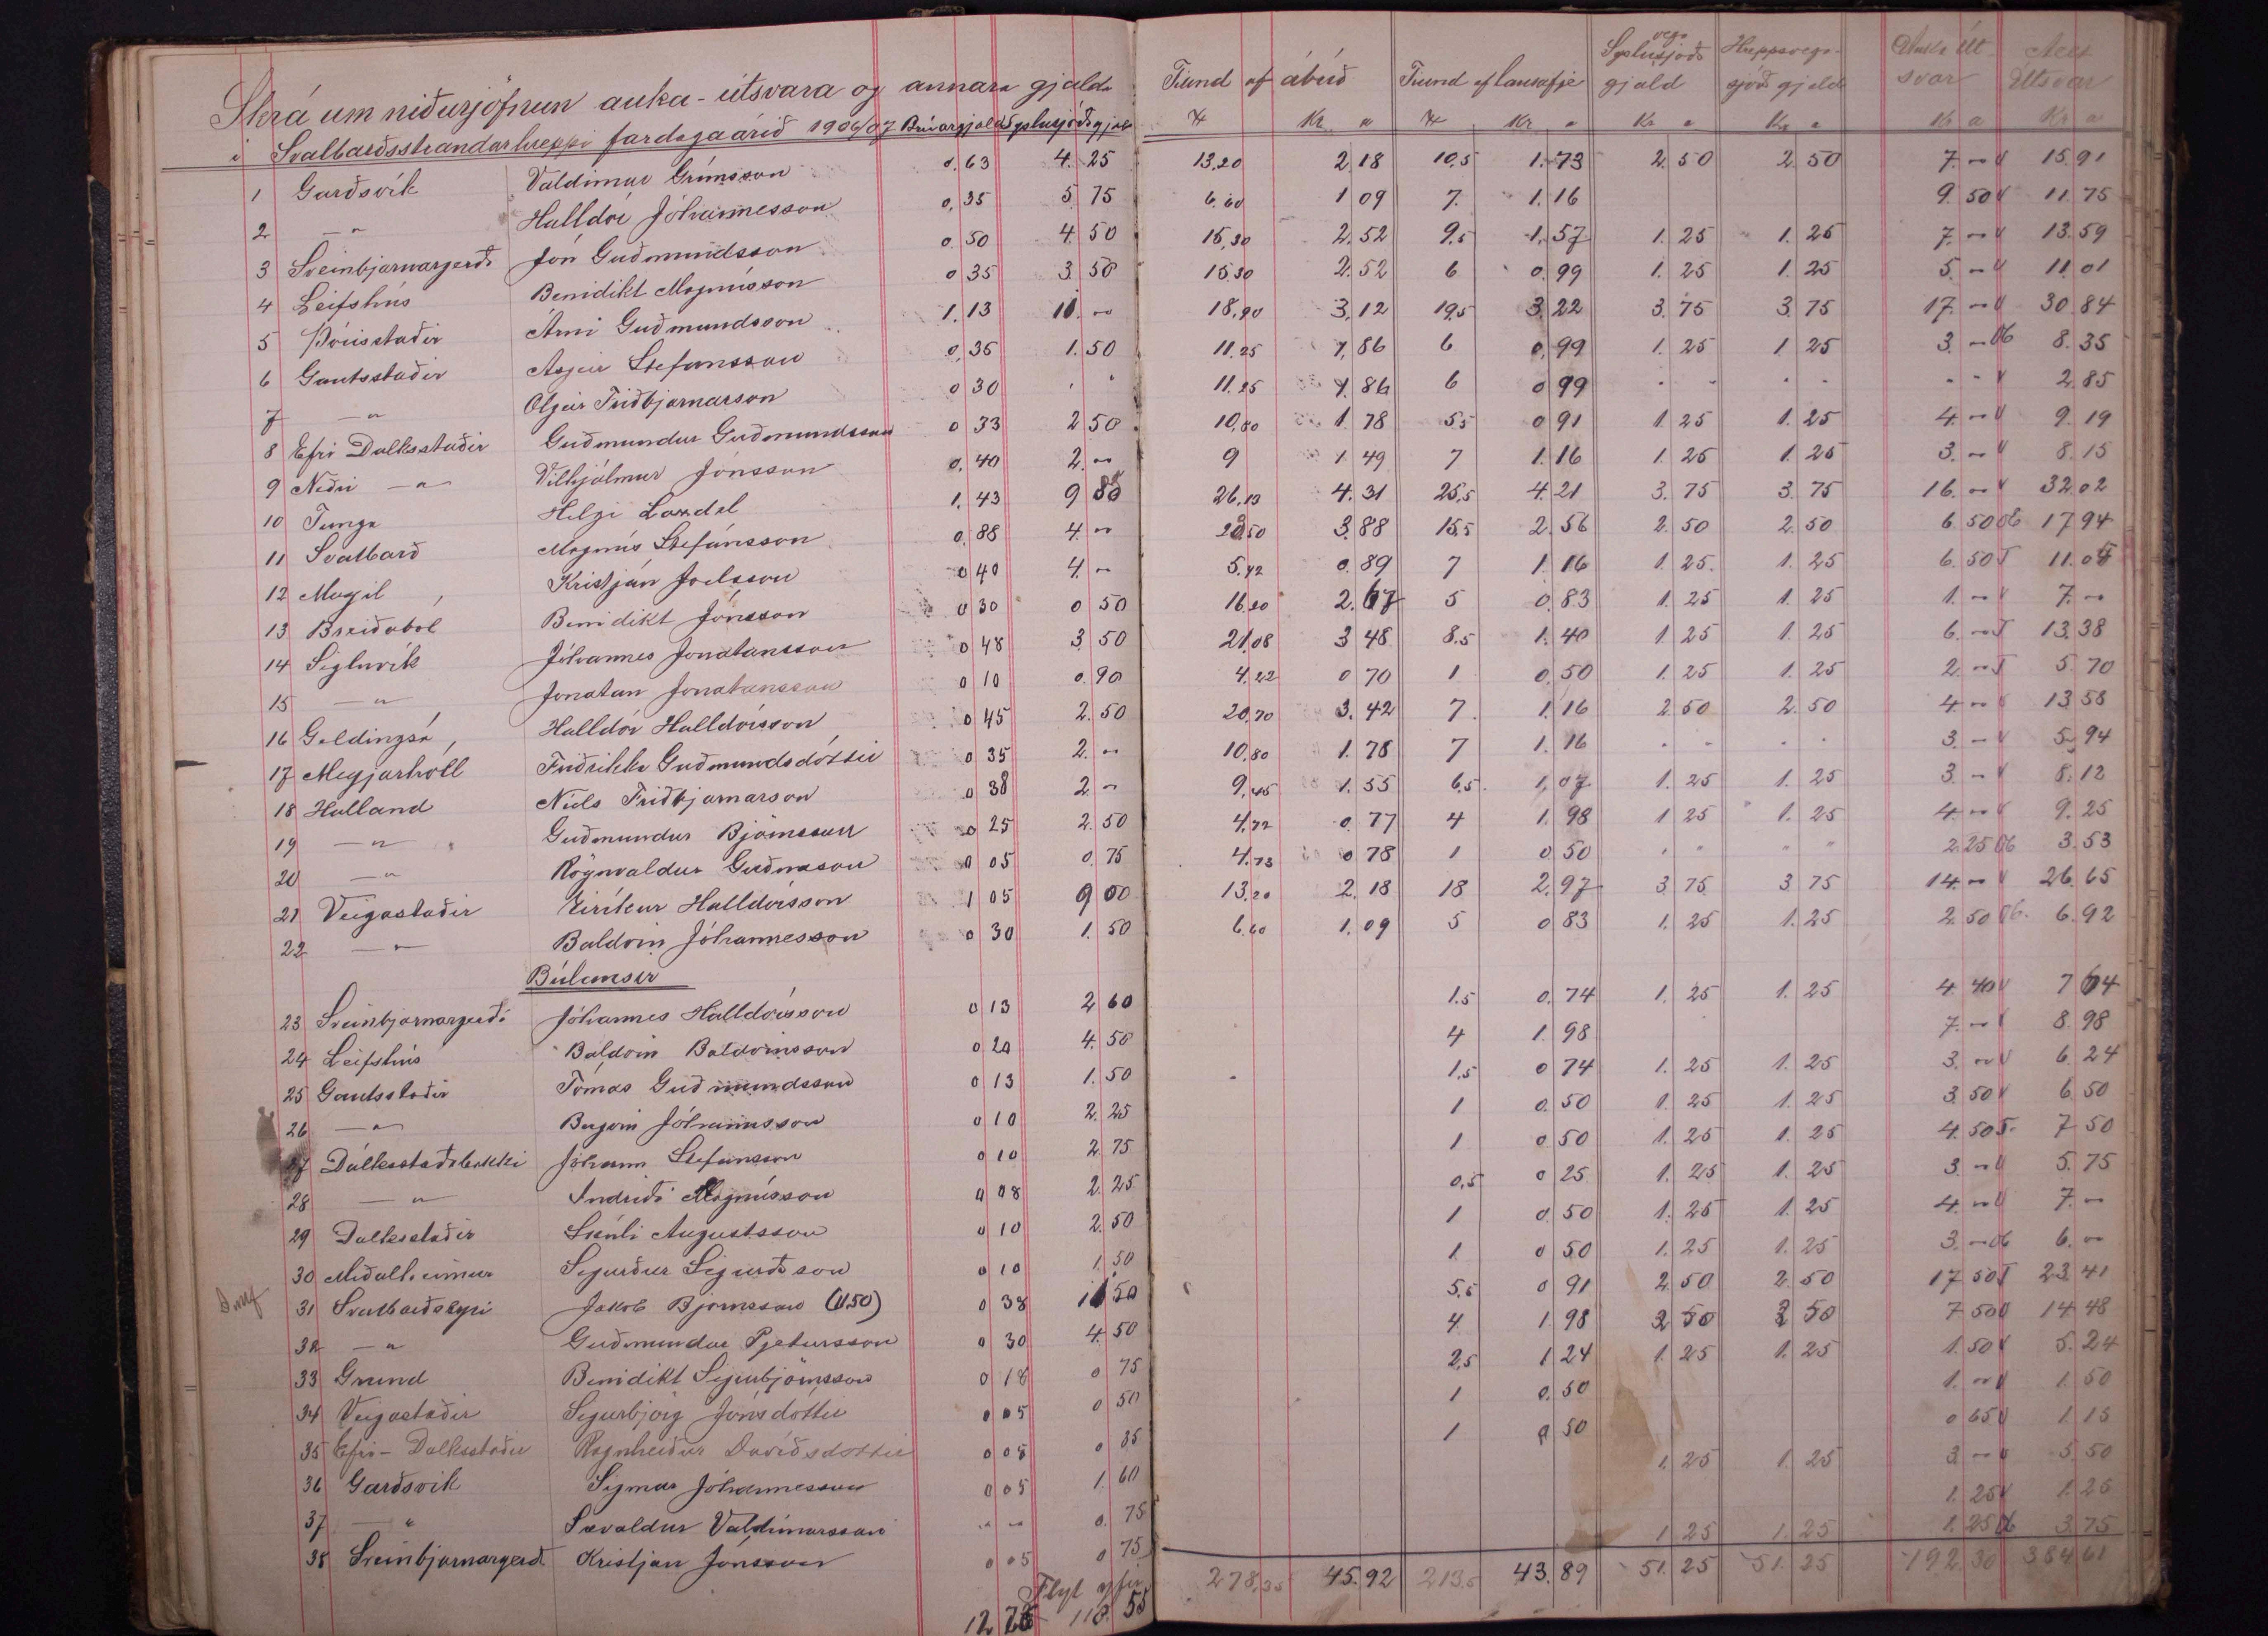 Skrá um niðurjöfnun auka-útsvara og annara gjalda
í Svalbarðsstrandarhreppi fardagaárið 1906/07 Búnargjald Syslusjóðsgjald
Tiund af ábúð Tiund af lausafje Syslusjóðs vega gjald Hreppsvega-sjóðs gjald Auka útsvar Alls Útsvar
H Kr a H Kr a Kr a Kr a Kr a Kr a
1 Garðsvík Valdimar Grímsson 0,63 4.25 13,20 2,18 10,5 1.73 2.50 2.50 7.-" V 15.91
2 -"- Halldór Jóhannesson 0,35 5.75 6.60 1 09 7. 1.16 9.50 V 11.75
3 Sveinbjarnargerði Jón Guðmundsson 0.50 4.50 15,30 2.52 9,5 1.57 1.25 1.25 7.-" V 13.59
4 Leifshús Benidikt Magnússon 0 35 3.50 15.30 2.52 6 0.99 1.25 1.25 5.-" V 11.01
5 Þórisstaðir Árni Guðmundsson 1.13 11.-" 18,90 3,12 19,5 3.22 3.75 3.75 17.-" V 30.84
6 Gautsstaðir Asgeir Stefansson 0,35 1.50 11.25 1,86 6 0,99 1.25 1 25 3.-" 06 8.35
7 -"- Olgeir Friðbjarnarson 0 30 " " 11.25 1.86 6 0 99 " " " " " " V 2.85
8 Efri Dálksstaðir Guðmundur Guðmundsson 0 33 2 50 10,80 1.78 5,5 0 91 1.25 1.25 4.-" V 9.19
9 Neðri -"- Vilhjálmur Jónsson 0,40 2.-" 9 1.49 7 1.16 1.25 1.25 3.-" V 8.15
10 Tunga Helgi Laxdal 1.43 9 85 26,10 4.31 25,5 4.21 3.75 3.75 16.-" V 32.02
11 Svalbarð Magnús Stefánsson 0.88 4.-" 23,50 3,88 15,5 2.56 2.50 2.50 6.50 06 17.94
12 Mógil Kristján Joelsson 0 40 4.-" 5.42 0.89 7 1.16 1.25. 1.25 6.50 T 11.05
13 Breiðaból Benidikt Jónsson 0 30 0 50 16.20 2.67 5 0,83 1.25 1.25 1.-" V 7.-"
14 Sigluvík Jóhannes Jonatansson 0 48 3.50 21,08 3 48 8.5 1.40 1.25 1.25 6.-" T 13.38
15 -"- Jonatan Jonatansson 0 10 0.90 4,22 0 70 1 0,50 1.25 1.25 2.-" T 5.70
16 Geldingsá Halldór Halldórsson 0 45 2.50 20,70 3.42 7. 1.16 2.50 2.50 4.-" V 13 58
17 Meyjarhóll Friðrikka Guðmundsdóttir 0 35 2.-" 10,80 1.78 7 1.16 " " " " 3.-" V 5.94
18 Halland Níels Friðbjarnarson 0 38 2.-" 9,45 1.55 6,5. 1,07 1.25 1.25 3.-" V 8.12
19 -"- Guðmundur Björnsson 0 25 2.50 4,72 0.77 4 1.98 1 25 1.25 4.-" V 9.25
20 -"- Rögnvaldur Guðnason 0 05 0.75 4.73 0 78 1 0.50 " " " " 2.25 06 3.53
21 Veigastaðir Eiríkur Halldórsson 1 05 9 00 13,20 2.18 18 2.97 3 75 3 75 14.-" V 26.65
22 -"- Baldvin Jóhannesson 0 30 1.50 6.60 1.09 5 0 83 1.25 1.25 2.50 06. 6.92
Búlausir
23 Sveinbjarnargerði Jóhannes Halldórsson 0 13 2 60 1.5 0.74 1.25 1.25 4 40 V 7 64
24 Leifshús Baldvin Baldvinsson 0 20 4.50 4 1.98 7.-" V 8.98
25 Gautsstaðir Tómas Guðmundsson 0 13 1.50 1,5 0 74 1.25 1.25 3.-" V 6.24
26 -"- Bergvin Jóhannsson 0 10 2.25 1 0.50 1.25 1.25 3.50 V 6 50
27 Dálksstaðabakki Jóhann Stefánsson 0 10 2.75 1 0.50 1.25 1.25 4.50 T. 7 50
28 -"- Indriði Magnússon 0 08 2.25 0,5 0 25 1.25 1.25 3.-" V 5.75
29 Dálksstaðir Skúli Augustsson 0 10 2.50 1 0.50 1.25 1.25 4.-" V 7.-"
30 Miðalheimur Sigurður Sigurðsson 0 10 1.50 1. 0 50 1.25 1.25 3.-" 06 6.-"
31 Svalbarðseyri Jakob Björnsson (11.50) 0 38 11 50 5,5 0 91 2.50 2.50 17 50 T 23.41
32 -"- Guðmundur Pjetursson 0 30 4.50 4 1.98 2 50 2 50 7 50 V 14 48
33 Grund Benidikt Sigurbjörnsson 0 18 0 75 2,5 1.24 1.25 1.25 1.50 V 5.24
34 Veigastaðir Sigurbjörg Jónsdóttir 0 05 0 50 1 0.50 1.-" V 1.50
35 Efri-Dálksstaðir Ragnheiður Davíðsdóttir 0 08 0 35 1 0 50 0 65 V 1.15
36 Garðsvík Sigmar Jóhannesson 0 05 1.60 1.25 1.25 3 -" V 5.50
37 -"- Sævaldur Valdimarsson -" -" 0.75 1.25 V 1.25
38 Sveinbjarnargerði Kristján Jónsson 0 05 0 75 1.25 1.25 1.25 06 3.75
Flyt yfir
12 76 118 55 278,35 45.92 213,5 43.89 51.25 51.25 192 30 384 61